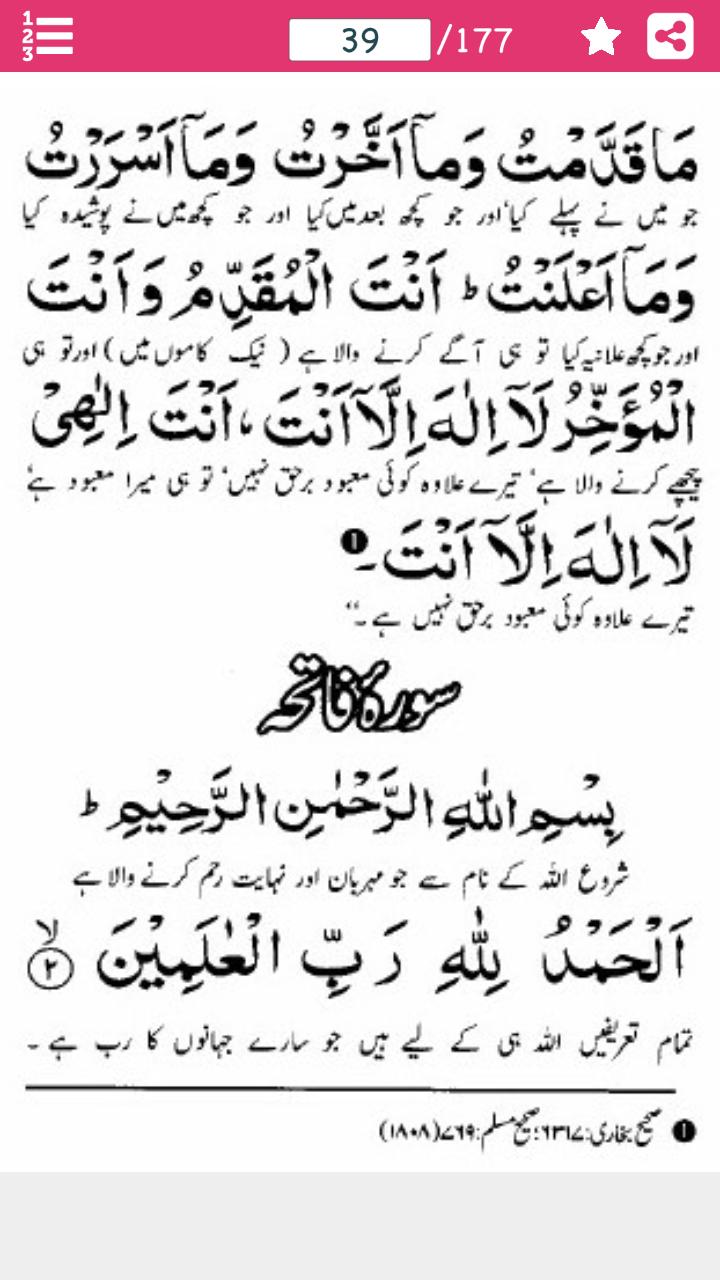 1
2
3
39 /177
مَا قَدَّمْتُ وَمَآ اَخَّرْتُ وَمَآ اَسْرَرْتُ
جو میں نے پہلے کیا، اور جو کچھ بعد میں کیا اور جو کچھ میں نے پوشیدہ کیا
وَمَآ اَعْلَنْتُ ؕ اَنْتَ الْمُقَدِّمُ وَ اَنْتَ
اور جو کچھ علانیہ کیا تو ہی آگے کرنے والا ہے ( نیک کاموں میں ) اور تو ہی
الْمُؤَخِّرُ لَآ اِلٰهَ اِلَّآ اَنْتَ ، اَنْتَ اِلٰهِيْ
پیچھے کرنے والا ہے، تیرے علاوہ کوئی معبود برحق نہیں، تو ہی میرا معبود ہے،
لَآ اِلٰهَ اِلَّآ اَنْتَ۔ ❶
تیرے علاوہ کوئی معبود برحق نہیں ہے۔“
سورۂ فاتحہ
بِسْمِ اللّٰهِ الرَّحْمٰنِ الرَّحِيْمِ ؕ
شروع اللہ کے نام سے جو مہربان اور نہایت رحم کرنے والا ہے
اَلْحَمْدُ لِلّٰهِ رَبِّ الْعٰلَمِيْنَ ۙ ﴿٢﴾
تمام تعریفیں اللہ ہی کے لیے ہیں جو سارے جہانوں کا رب ہے ۔
❶ صحیح بخاری: ۶۳۱۷؛ صحیح مسلم: ۷۶۹ (۱۸۰۸)